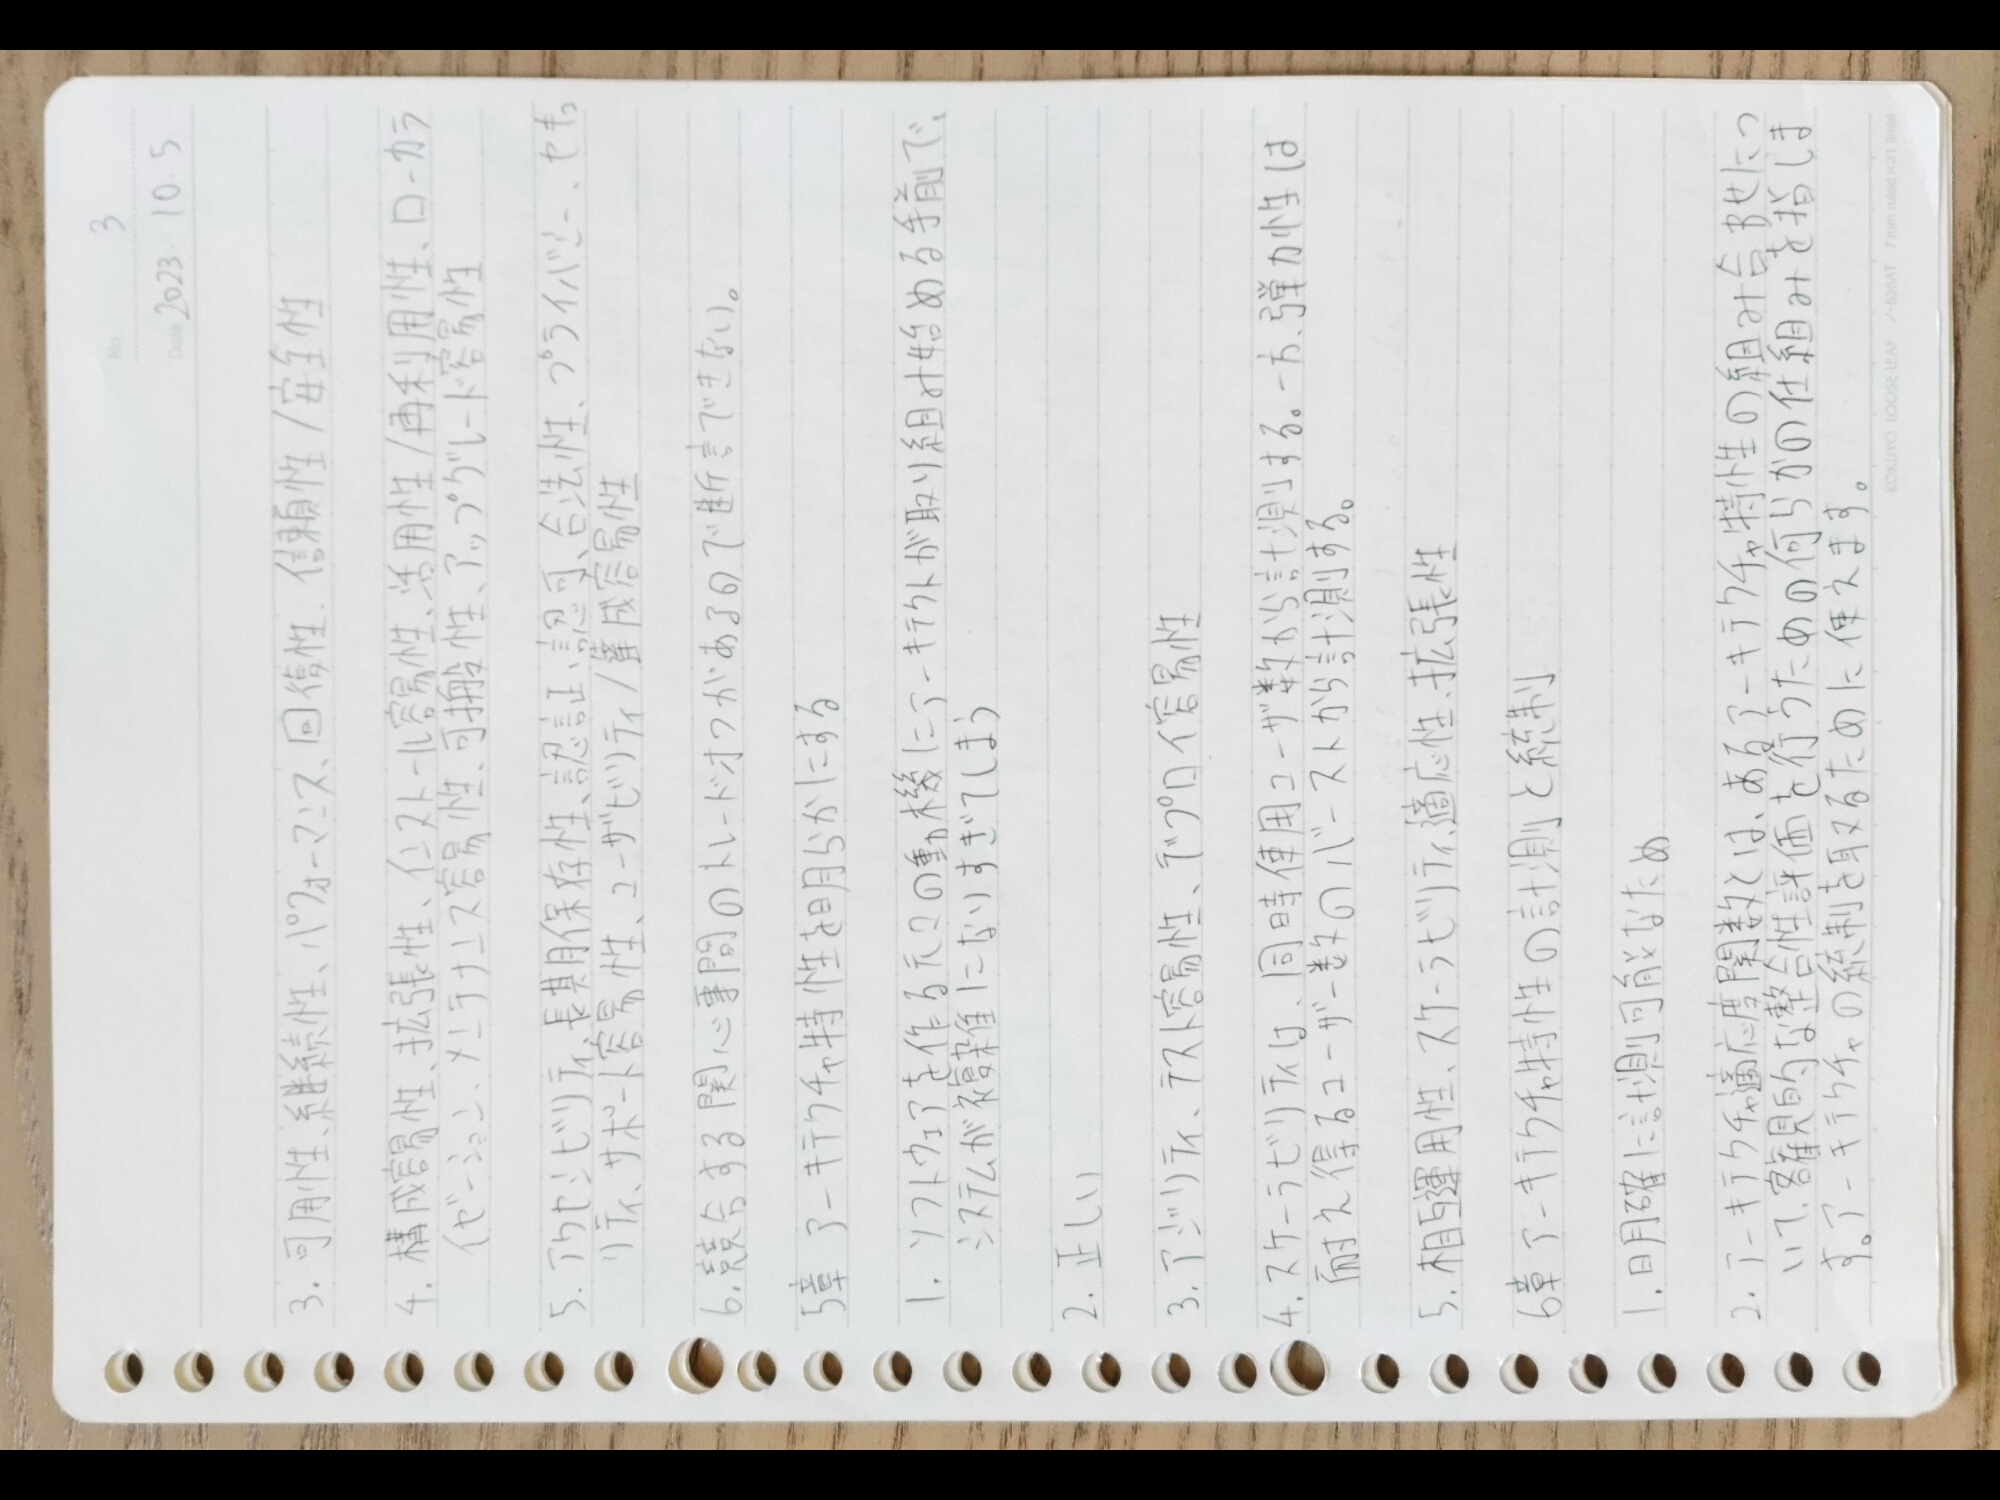 No. 3
Date 2023. 10. 5
3. 可用性、継続性、パフォーマンス、回復性、信頼性/安全性
4. 構成容易性、拡張性、インストール容易性、活用性/再利用性、ローカラ
イゼーション、メンテナンス容易性、可搬性、アップグレード容易性
5. アクセシビリティ、長期保存性、認証、認可、合法性、プライバシー、セキュ
リティ、サポート容易性、ユーザビリティ/達成容易性
6. 競合する関心事間のトレードオフがあるので断言できない。
5章 アーキテクチャ特性を明らかにする
1. ソフトウェアを作る元々の動機にアーキテクトが取り組み始める手前で、
システムが複雑になりすぎてしまう
2. 正しい
3. アジリティ、テスト容易性、デプロイ容易性
4. スケーラビリティは、同時使用ユーザ数から計測する。一方、弾力性は
耐え得るユーザー数のバーストから計測する。
5. 相互運用性、スケーラビリティ、適応性、拡張性
6章 アーキテクチャ特性の計測と統制
1. 明確に計測可能なため
2. アーキテクチャ適応度関数とは、あるアーキテクチャ特性の組み合わせについ
いて、客観的な整合性評価を行うための何らかの仕組みを指しま
す。アーキテクチャの統制を取るために使えます。
KOKUYO LOOSE-LEAF ノ-836AT 7mm ruled×31 lines